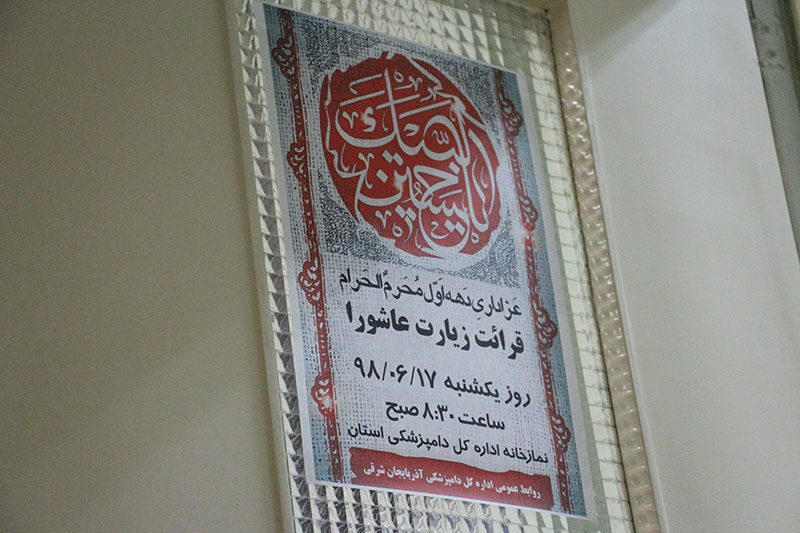 لبیک یا حسین
عزاداری دهه اوّل مُحَرمُ الحَرام
قرائت زیارت عاشورا
روز یکشنبه ۹۸/۰۶/۱۷
ساعت ۸:۳۰ صبح
نمازخانه اداره کل دامپزشکی استان
روابط عمومی اداره کل دامپزشکی آذربایجان شرقی